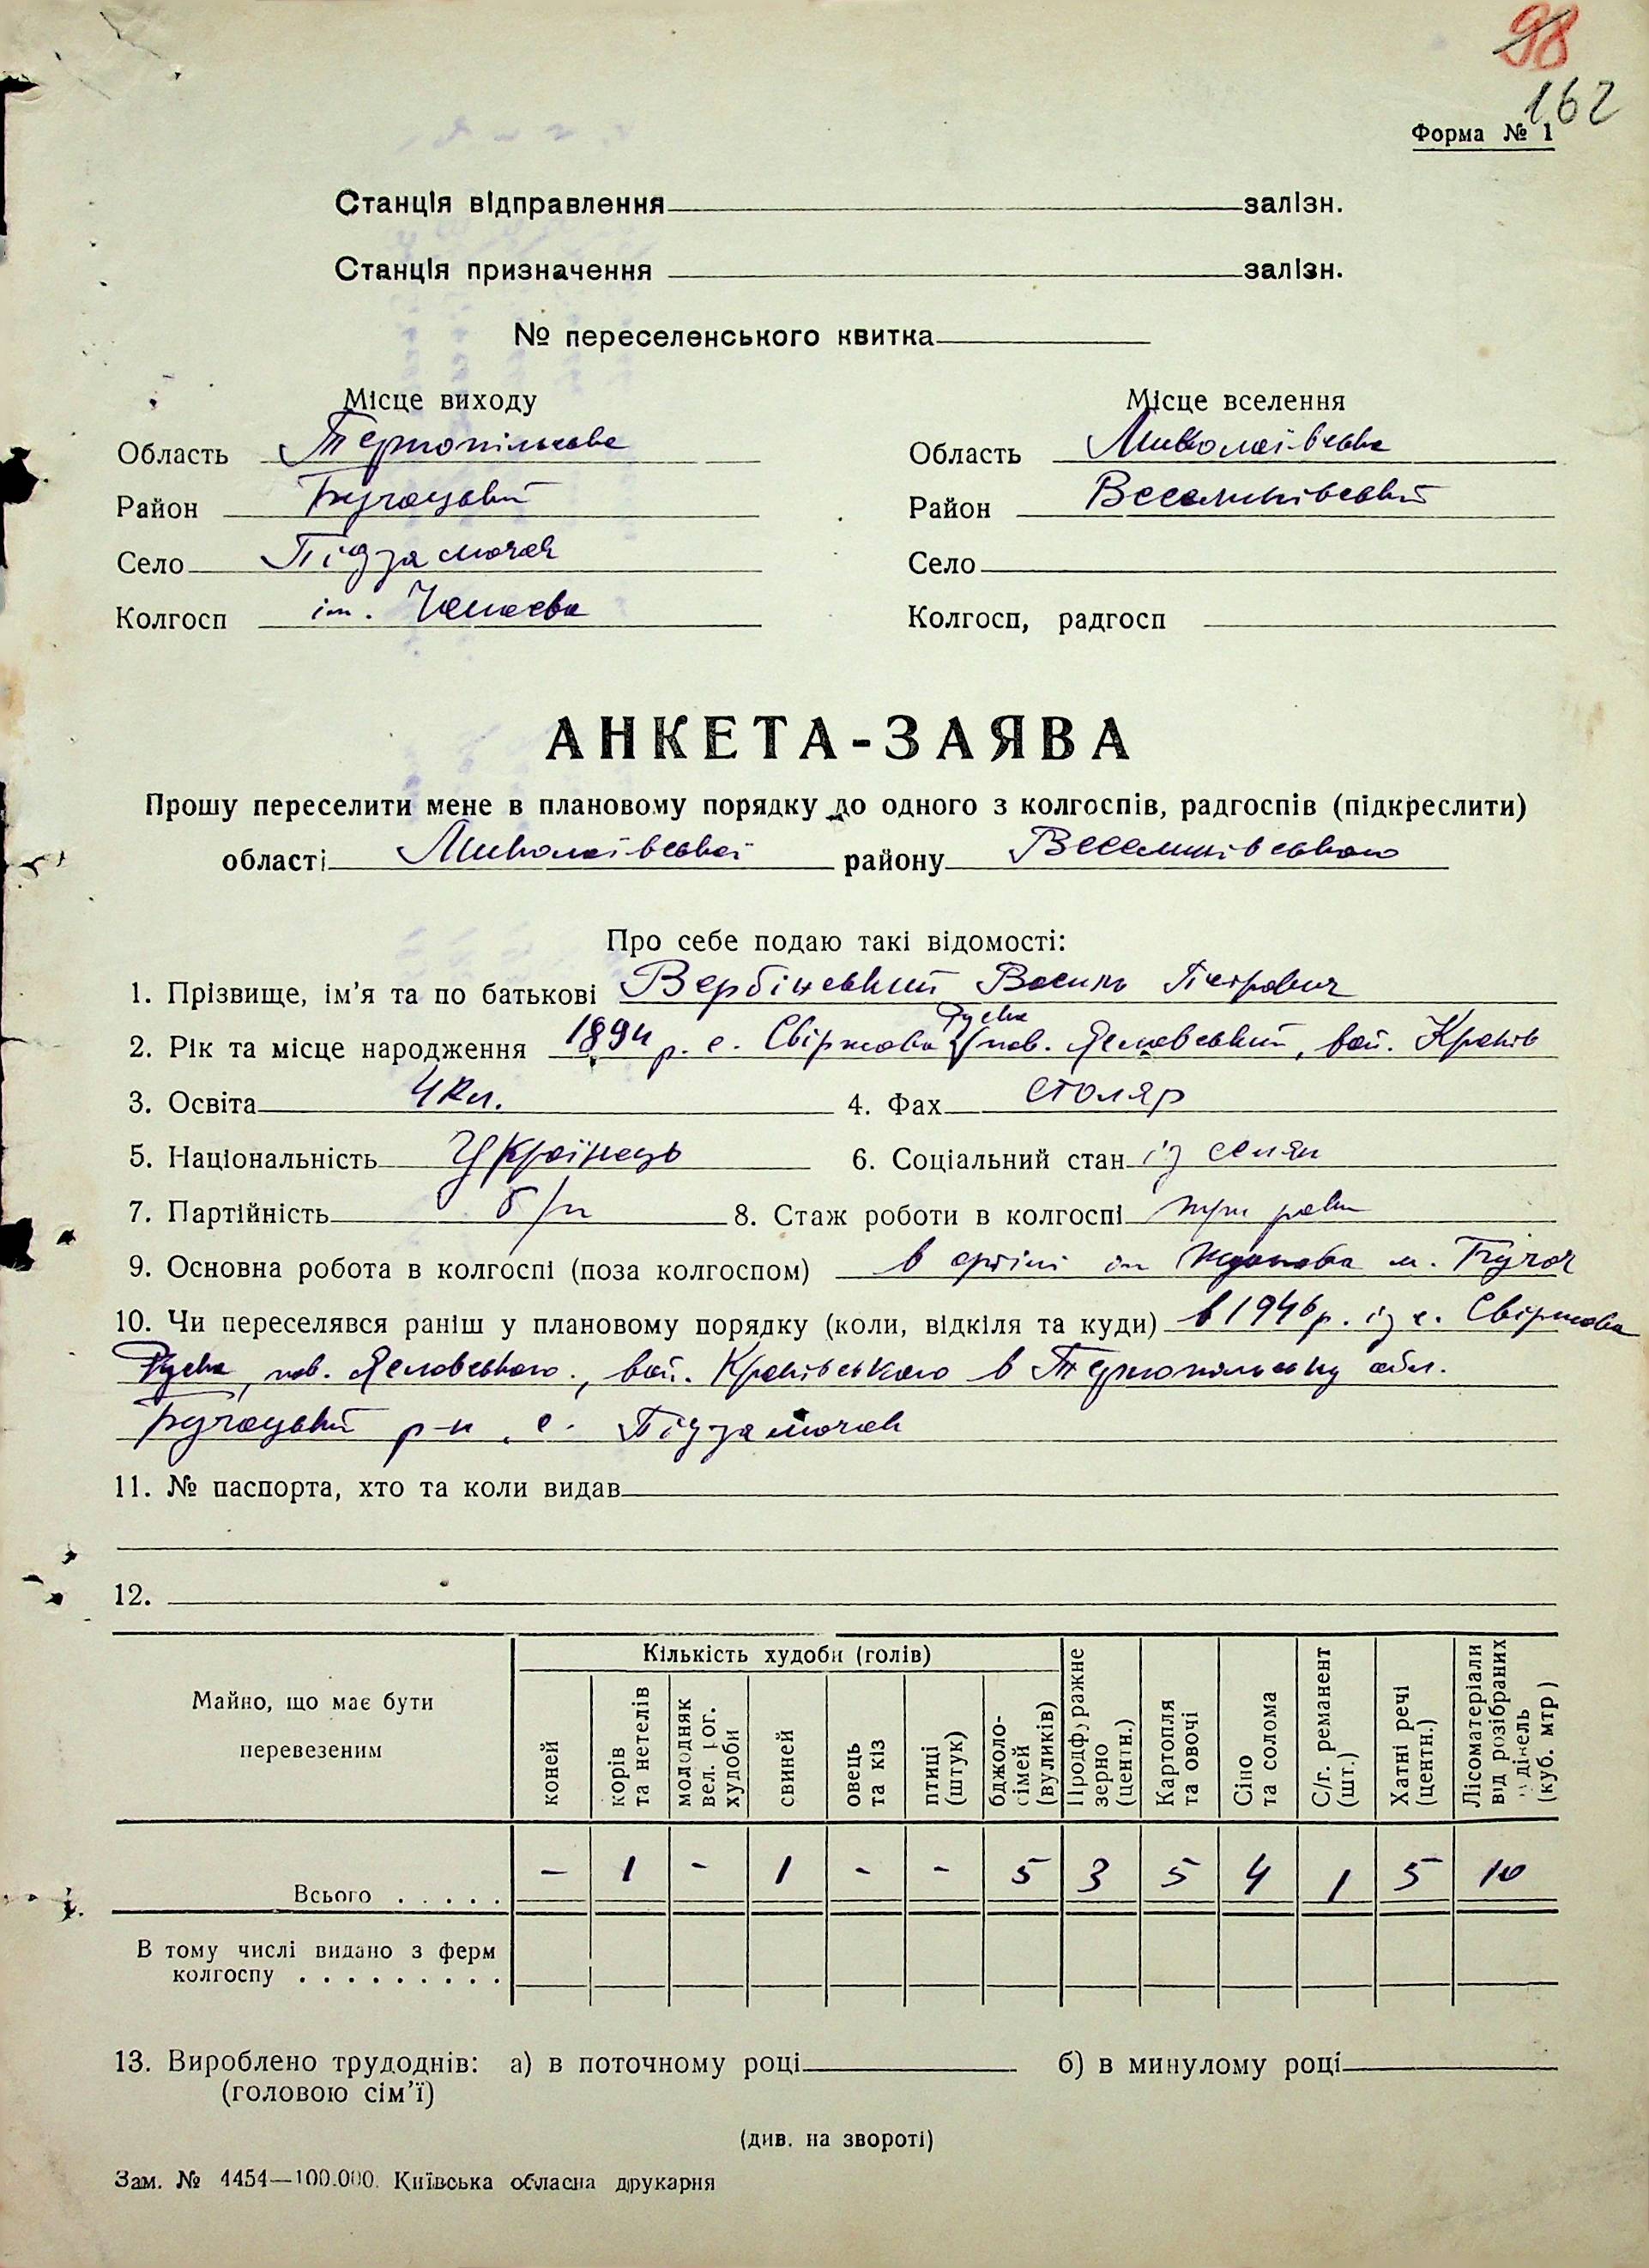 98
162
Форма № 1
Станція відправлення залізн.
Станція призначення залізн.
№ переселенського квитка
Місце виходу Місце вселення
Область Тернопільська Область Миколаївська
Район Бучацький Район Веселинівський
Село Підзамочок Село
Колгосп ім. Чапаєва Колгосп, радгосп
АНКЕТА-ЗАЯВА
Прошу переселити мене в плановому порядку до одного з колгоспів, радгоспів (підкреслити)
області Миколаївської району Веселинівського
Про себе подаю такі відомості:
1. Прізвище, ім'я та по батькові Вербінський Василь Петрович
Руська
2. Рік та місце народження 1894 р. с. Свіржова пов. Ясловський, вой. Краків
3. Освіта 4 кл. 4. Фах столяр
5. Національність Українець 6. Соціальний стан із селян
7. Партійність б/п 8. Стаж роботи в колгоспі три роки
9. Основна робота в колгоспі (поза колгоспом) в артілі ім Жданова м. Бучач
10. Чи переселявся раніш у плановому порядку (коли, відкіля та куди) в 1946 р. із с. Свіржова
Руська, пов. Ясловського., вой. Краківського в Тернопільську обл.
Бучацький р-н, с. Підзамочок
11. № паспорта, хто та коли видав
12.
Майно, що має бути перевезеним
Кількість худоби (голів)
коней
корів та нетелів
молодняк вел. рог. худоби
свиней
овець та кіз
птиці (штук)
бджоло-сімей (вуликів)
Продфуражне зерно (центн.)
Картопля та овочі
Сіно та солома
С/г. реманент (шт.)
Хатні речі (центн.)
Лісоматеріали від розібраних будівель (куб. мтр)
Всього . . . . . – 1 - 1 - - 5 3 5 4 1 5 10
В тому числі видано з ферм
колгоспу . . . . . . . . .
13. Вироблено трудоднів: а) в поточному році б) в минулому році
(головою сім'ї)
(див. на звороті)
Зам. № 4454—100.000. Київська обласна друкарня